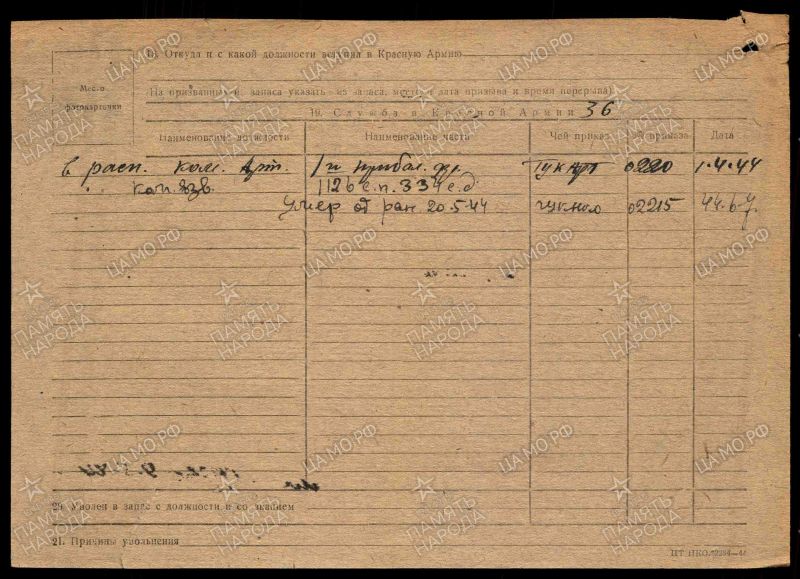 18. Откуда и с какой должности вступил в Красную Армию
Место
фотокарточки
(На призванных из запаса указать из запаса, место и дата призыва и время перерыва)
19. Служба в Красной Армии 36
Наименование должности Наименование части Чей приказ № приказа Дата
в расп. ком. Арт. 1 й прибал. фр. 0220 1.4.44
ком. взв. 1126 с.п. 334 с.д.
Умер от ран 20.5.44 02215 44.6.7
20. Уволен в запас с должности и со званием
21. Причины увольнения
ЦТ НКО
ПАМЯТЬ НАРОДА
ЦАМО.РФ